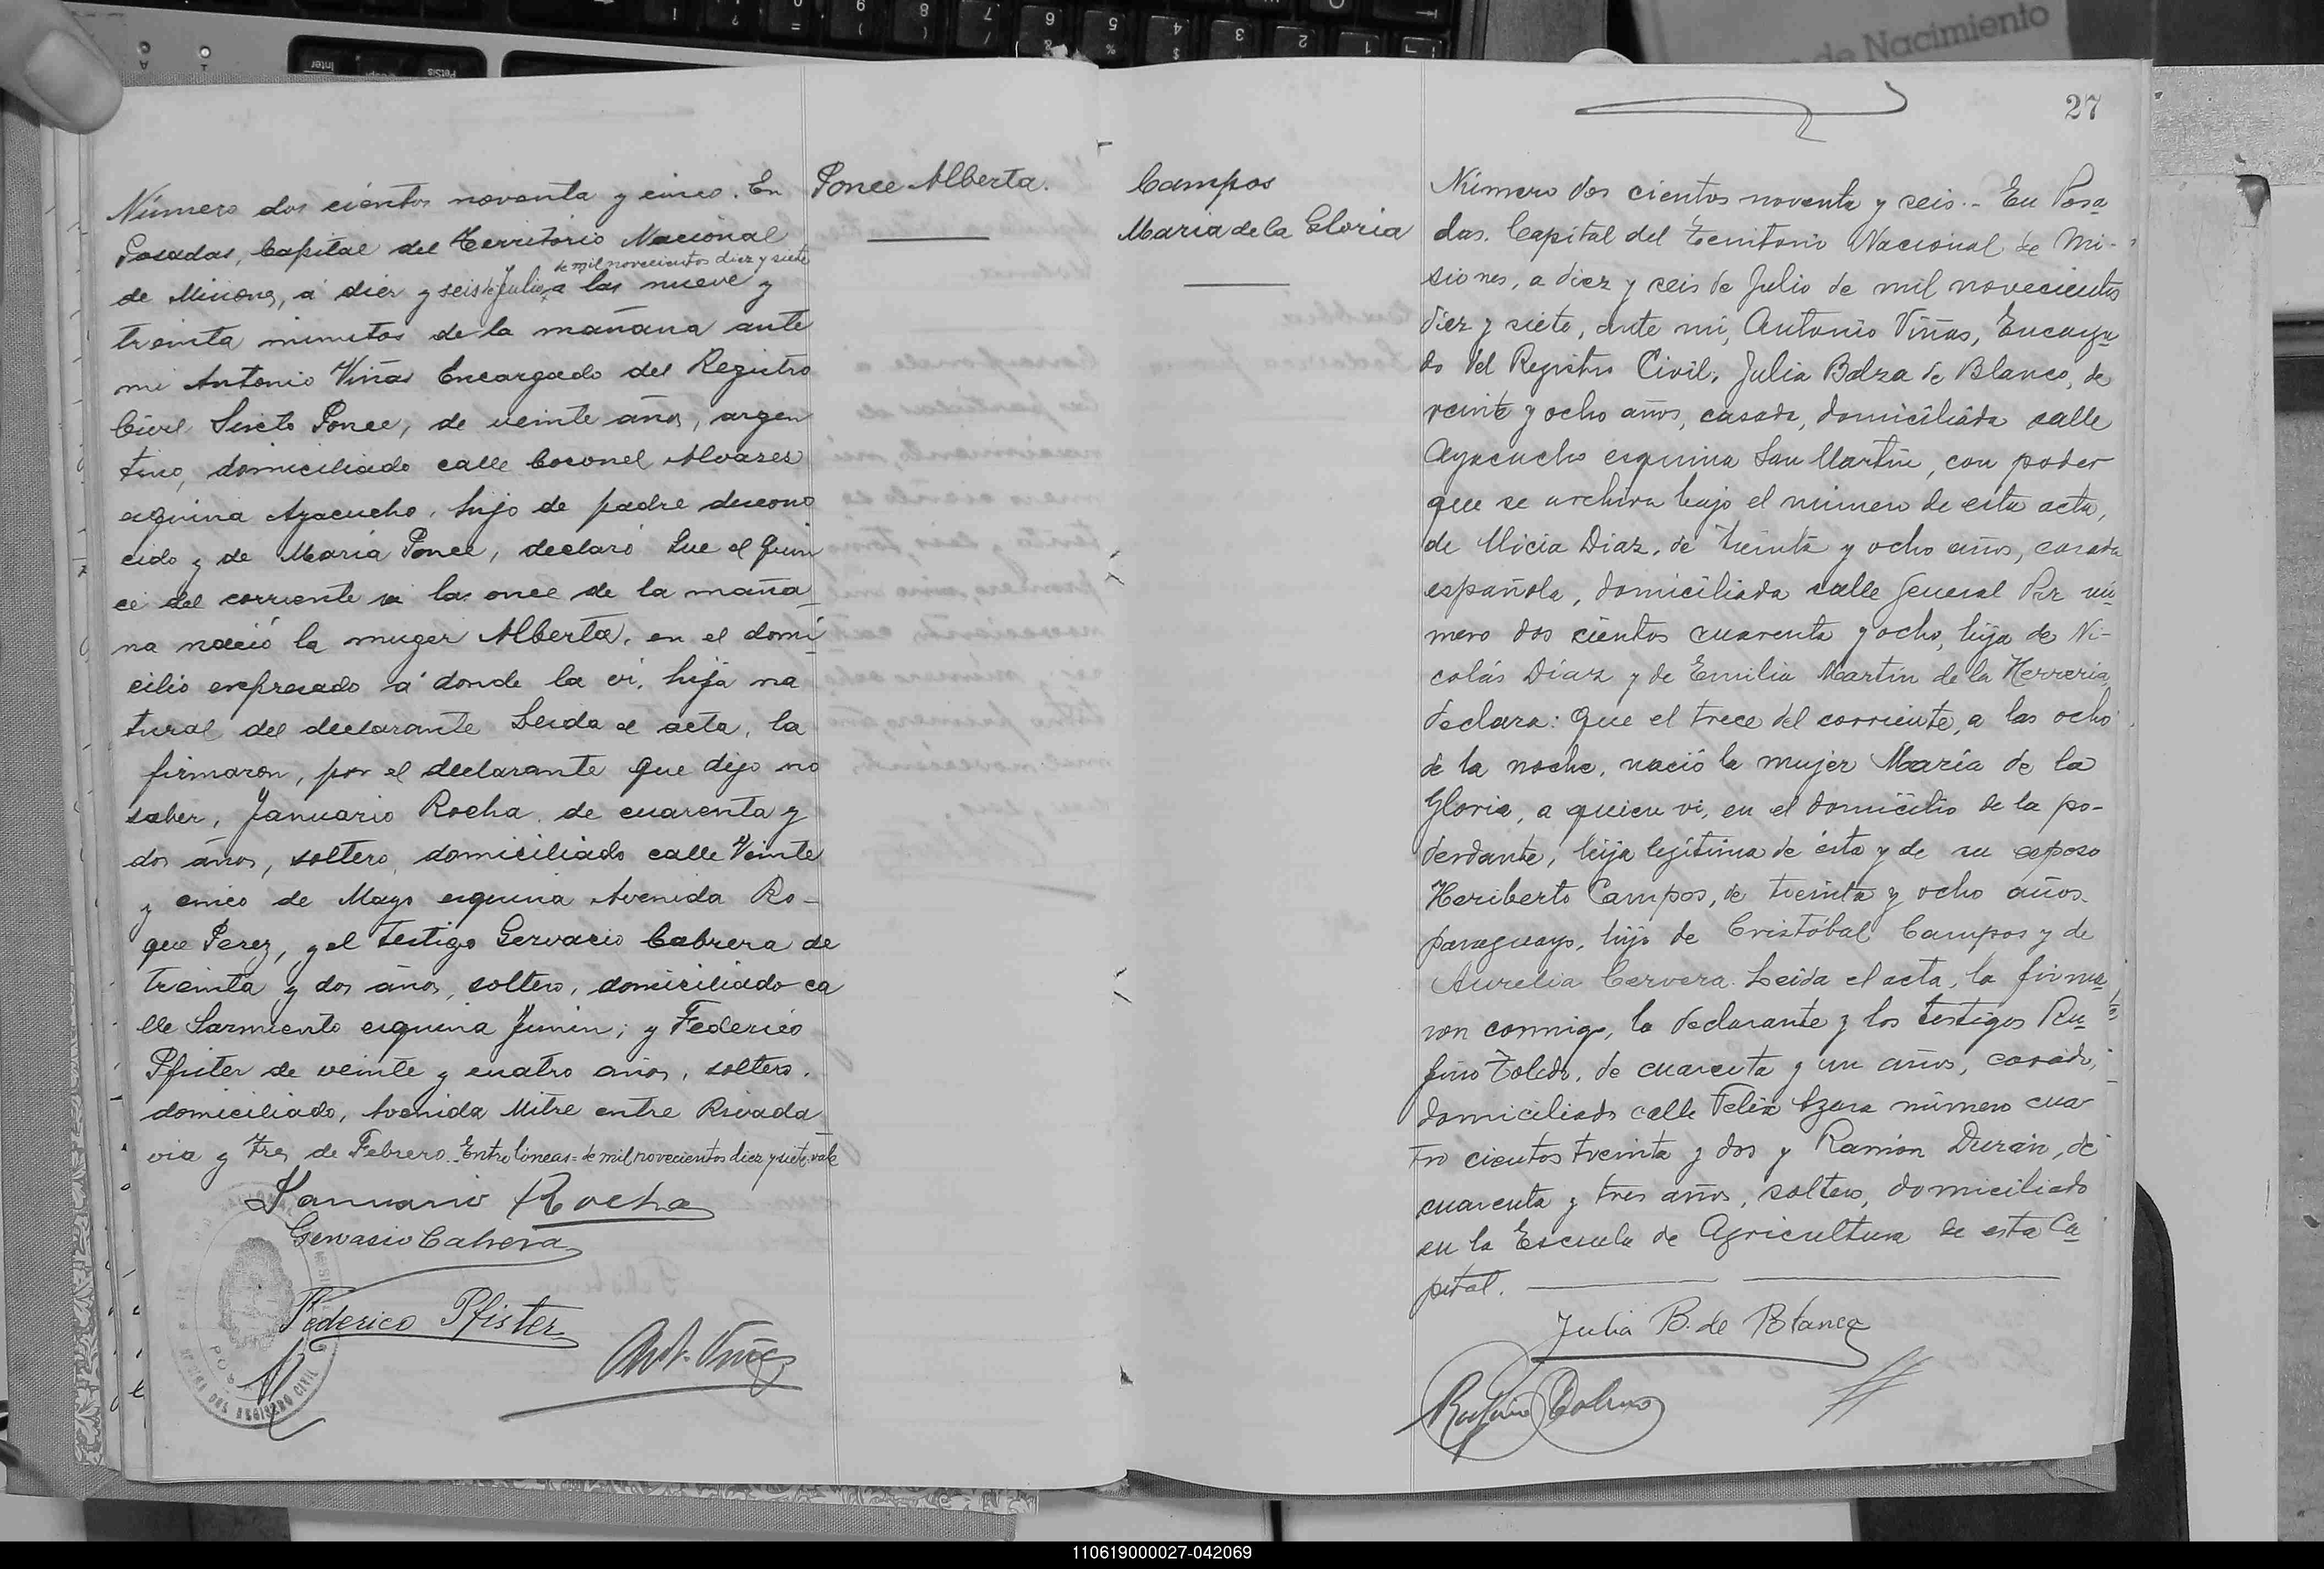 de Nacimiento
27
Ponce Alberta.
Número dos cientos noventa y cinco. En
Posadas, Capital del Territorio Nacional
de mil novecientos diez y siete
de Misiones, á diez y seis de Julio, a las nueve y
treinta minutos de la mañana ante
mi Antonio Viñas Encargado del Registro
Civil Sixto Ponce, de veinte años, argen
tino, domiciliado calle Coronel Alvares
esquina Ayacucho, hijo de padre descono
cido y de María Ponce, declaró Que el quin
ce del corriente a las once de la maña
na nació la muger Alberta, en el domi
cilio expresado á donde la vi, hija na
tural del declarante Leida el acta, la
firmaron, por el declarante que dijo no
saber, Januario Rocha, de cuarenta y
dos años, soltero, domiciliado calle Veinte
y cinco de Mayo esquina Avenida Ro-
que Perez, y el testigo Gervacio Cabrera de
treinta y dos años, soltero, domiciliado ca
lle Sarmiento esquina Junin; y Federico
Pfister de veinte y cuatro años, soltero,
domiciliado, Avenida Mitre entre Rivada
via y Tres de Febrero. Entre líneas = de mil novecientos diez y siete: vale
Januario Rocha
Gervasio Cabrera
Federico Pfister
Ant. Viñas
Campos
Maria de la Gloria
Número dos cientos noventa y seis.- En Posa
das, Capital del Territorio Nacional de Mi-
siones, a diez y seis de Julio de mil novecientos
diez y siete, ante mi, Antonio Viñas, Encarga
do del Registro Civil, Julia Balza de Blanco, de
veinte y ocho años, casada, domiciliada calle
Ayacucho esquina San Martín, con poder
que se archiva bajo el número de esta acta,
de Alicia Diaz, de treinta y ocho años, casada
española, domiciliada calle General Paz nú
mero dos cientos cuarenta y ocho, hija de Ni-
colás Díaz y de Emilia Martín de la Herreria,
declara: Que el trece del corriente, a las ocho
de la noche, nació la mujer María de la
Gloria, a quien vi, en el domicilio de la po-
derdante, hija legítima de ésta y de su esposo
Heriberto Campos, de treinta y ocho años
paraguayo, hijo de Cristóbal Campos y de
Aurelia Cervera. Leída el acta, la firma
ron conmigo, la declarante y los testigos Ru
fino Toledo, de cuarenta y un años, casado,
domiciliado calle Felix Azara número cua
tro cientos treinta y dos y Ramón Durán, de
cuarenta y tres años, soltero, domiciliado
en la Escuela de Agricultura de esta Ca
pital.
Julia B. de Blanco
110619000027-042069